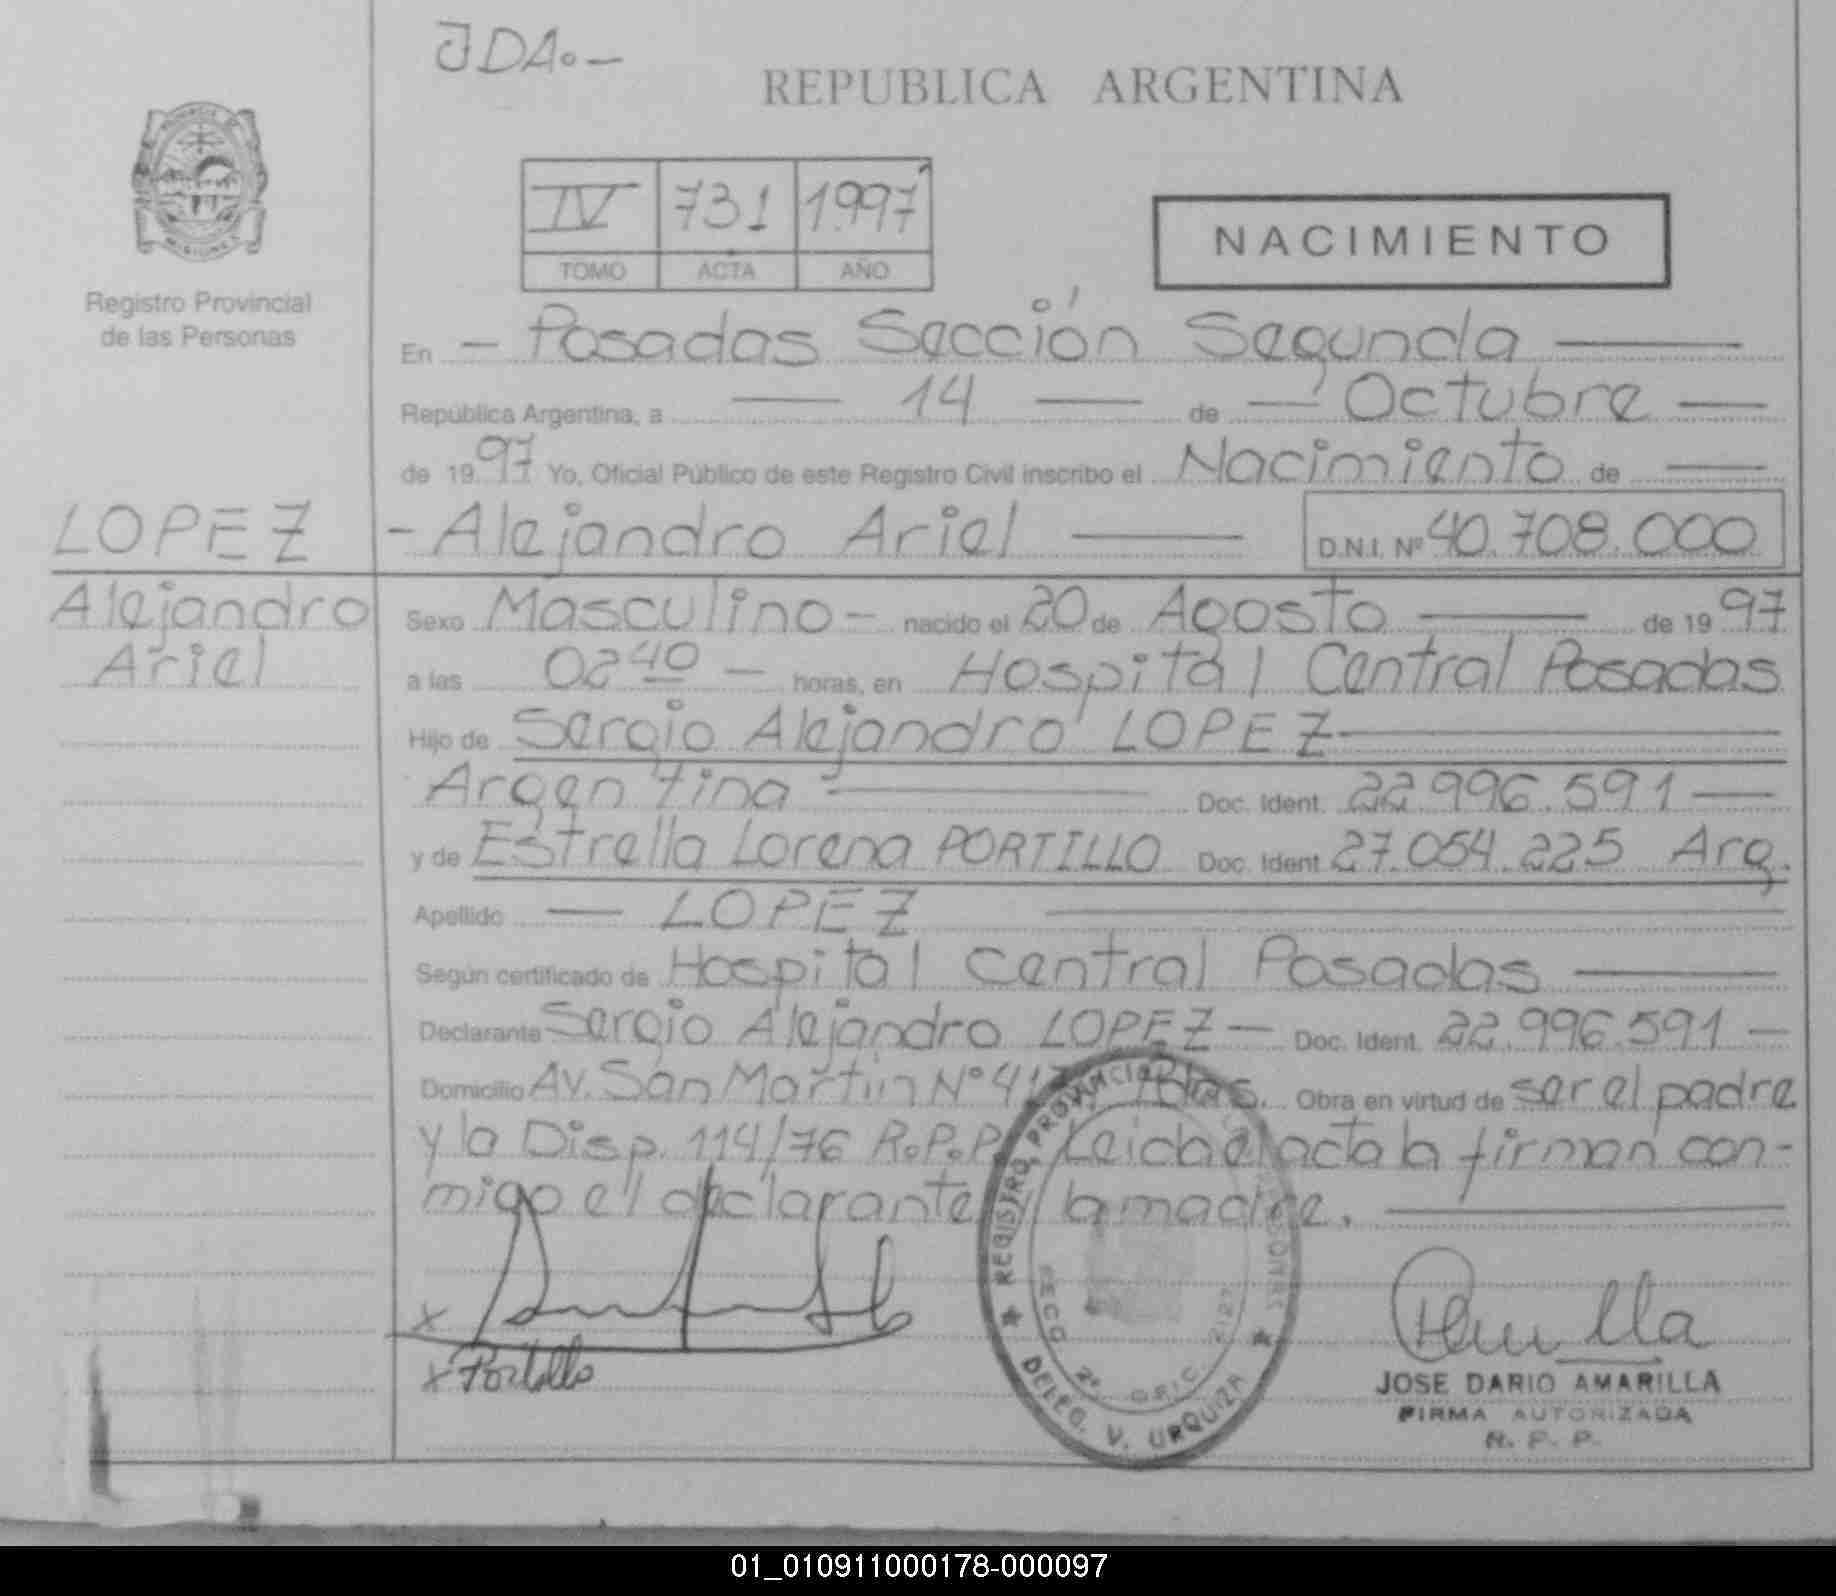 JDA.-
REPUBLICA ARGENTINA
PROVINCIA D
MISIONES
Registro Provincial
de las Personas
IV 731 1.997
TOMO ACTA AÑO
NACIMIENTO
En - Posadas Sección Segunda
República Argentina, a — 14 — de — Octubre —
de 1997 Yo, Oficial Público de este Registro Civil inscribo el Nacimiento de —
LOPEZ
- Alejandro Ariel — D.N.I. Nº 40.708.000
Alejandro
Ariel
Sexo Masculino - nacido el 20 de Agosto — de 1997
a las 02 40 - horas, en Hospital Central Posadas
Hijo de Sergio Alejandro LOPEZ
Argentina — Doc. Ident. 22.996.591 —
y de Estrella Lorena PORTILLO Doc. Ident. 27.054.225 Arg.
Apellido — LOPEZ
Según certificado de Hospital Central Posadas —
Declarante Sergio Alejandro LOPEZ — Doc. Ident. 22.996.591 —
Domicilio Av. San Martín Nº Pdas. Obra en virtud de ser el padre
y la Disp. 114/76 R.P.P. Leida el acta la firman con-
migo el declarante la madre.
REGISTRO PROVINCIAL
SECC 2º OFIC. 2127
DELEG. V. URQUIZA
x
x Portillo
JOSE DARIO AMARILLA
FIRMA AUTORIZADA
R. P. P.
01_010911000178-000097